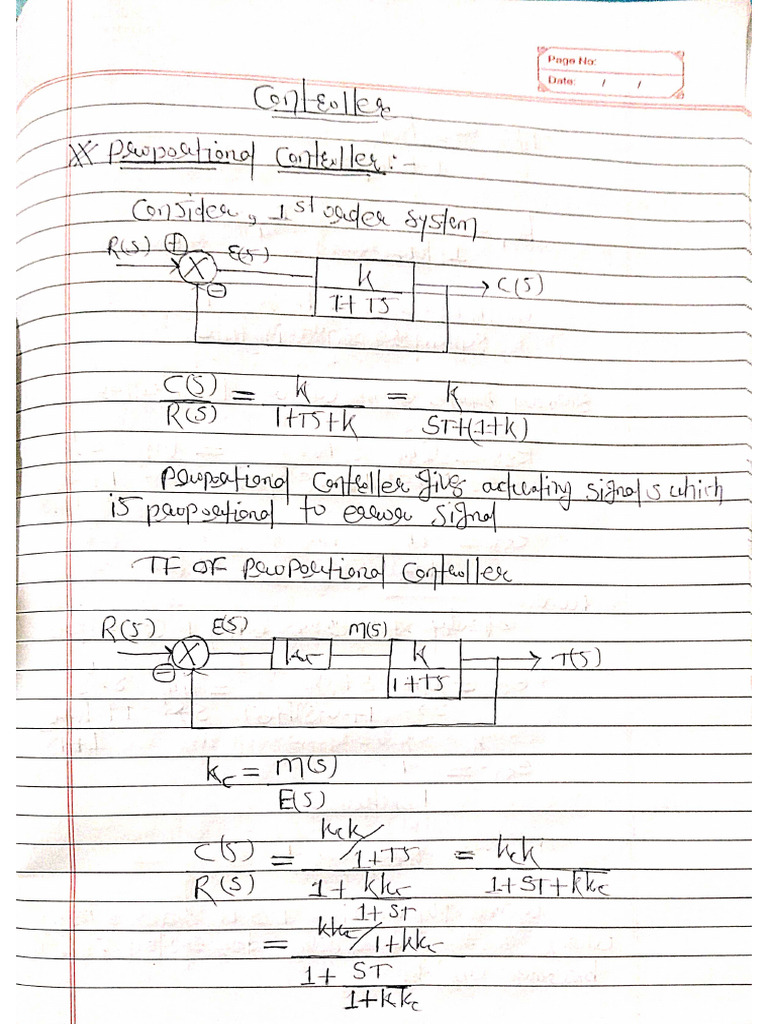 Page No:
Date: / /
Controller
XX Proportional Controller:-
Consider, 1st order system
R(s) + E(s) K C(s)
X
- 1+TS
C(s) = K = K
R(s) 1+TS+K ST+(1+K)
Proportional Controller gives actuating signals which
is proportional to error signal
TF OF Proportional Controller
R(s) E(s) M(s)
X Kc K T(s)
- 1+TS
Kc = M(s)
E(s)
C(s) = KcK/1+TS = KcK
R(s) 1 + KKc 1+ST+KKc
1+ST
= KKc/1+KKc
1+ ST
1+KKc